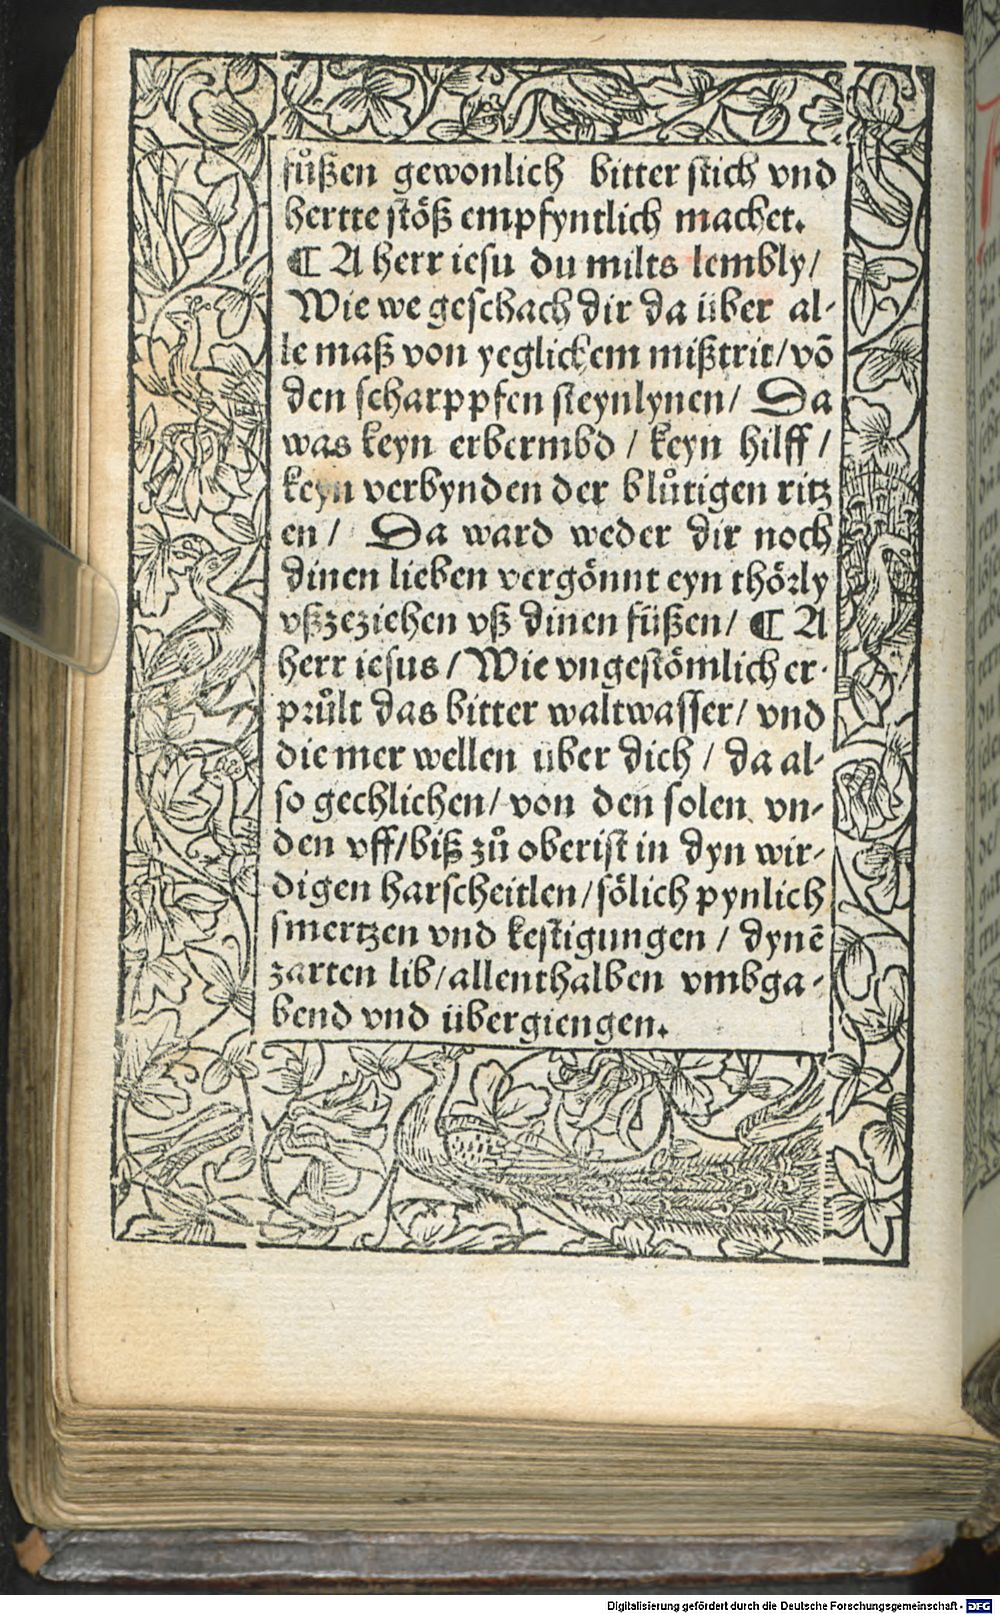 fůßen gewonlich bitter stich vnd
hertte stöß empfyntlich machet.
¶ A herr iesu du milts lembly/
Wie we geschach dir da über al-
le maß von yeglichem mißtrit/ võ
den scharppfen steynlynen/ Da
was keyn erbermbd / keyn hilff /
keyn verbynden der blůtigen ritz
en / Da ward weder dir noch
dinen lieben vergönnt eyn thörly
vßzeziehen vß dinen füßen/ ¶ A
herr iesus / Wie vngestömlich er-
průlt das bitter waltwasser/ vnd
die mer wellen über dich / da al-
so gechlichen/ von den solen vn-
den vff/biß zů oberist in dyn wir-
digen harscheitlen/sölich pynlich
smertzen vnd kestigungen / dynẽ
zarten lib/allenthalben vmbga-
bend vnd übergiengen.
Digitalisierung gefördert durch die Deutsche Forschungsgemeinschaft - DFG